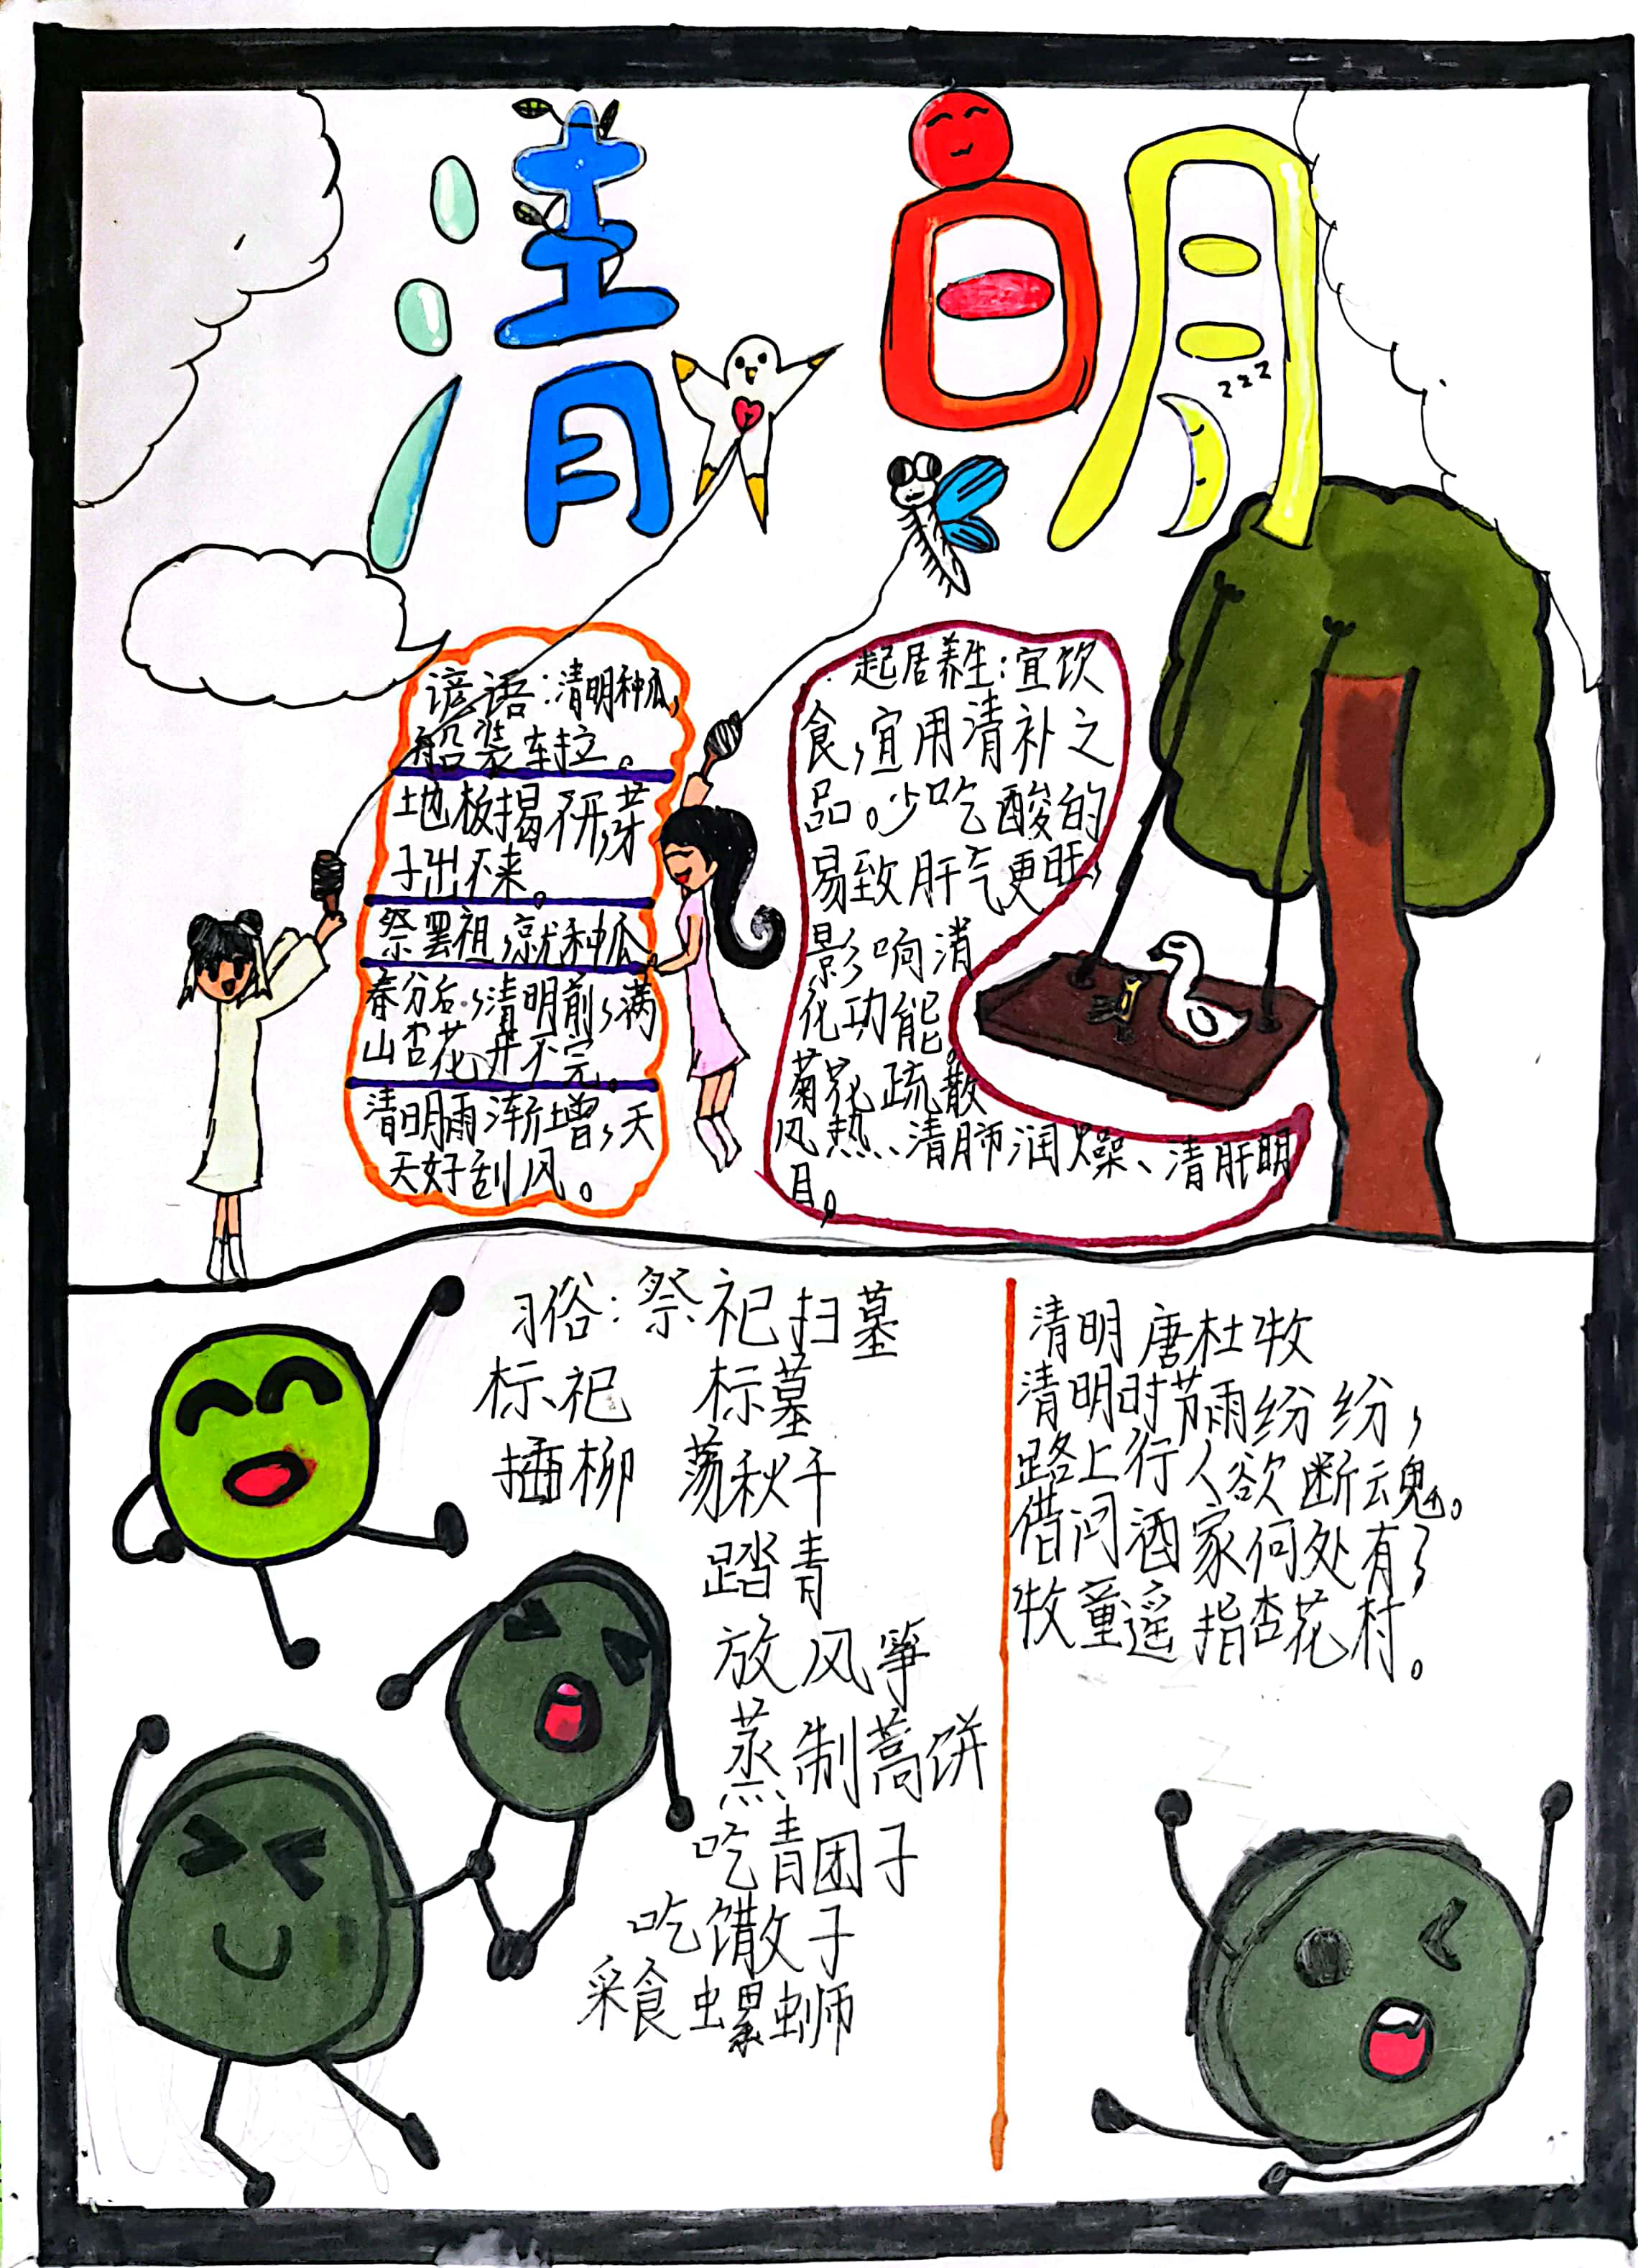 清明
zzz
谚语:清明种瓜,
船装车拉。
地板揭不开,芽
子出不来。
祭罢祖,就种瓜
春分后,清明前,满
山杏花开不完。
清明雨渐增,天
天好刮风。
起居养生:宜饮
食,宜用清补之
品。少吃酸的
易致肝气更旺,
影响消
化功能。
菊花疏散
风热、清肺润燥、清肝明
目。
习俗:祭祀扫墓
标祀 标墓
插柳 荡秋千
踏青
放风筝
蒸制蒿饼
吃青团子
吃馓子
采食螺蛳
清明 唐杜牧
清明时节雨纷纷,
路上行人欲断魂。
借问酒家何处有?
牧童遥指杏花村。